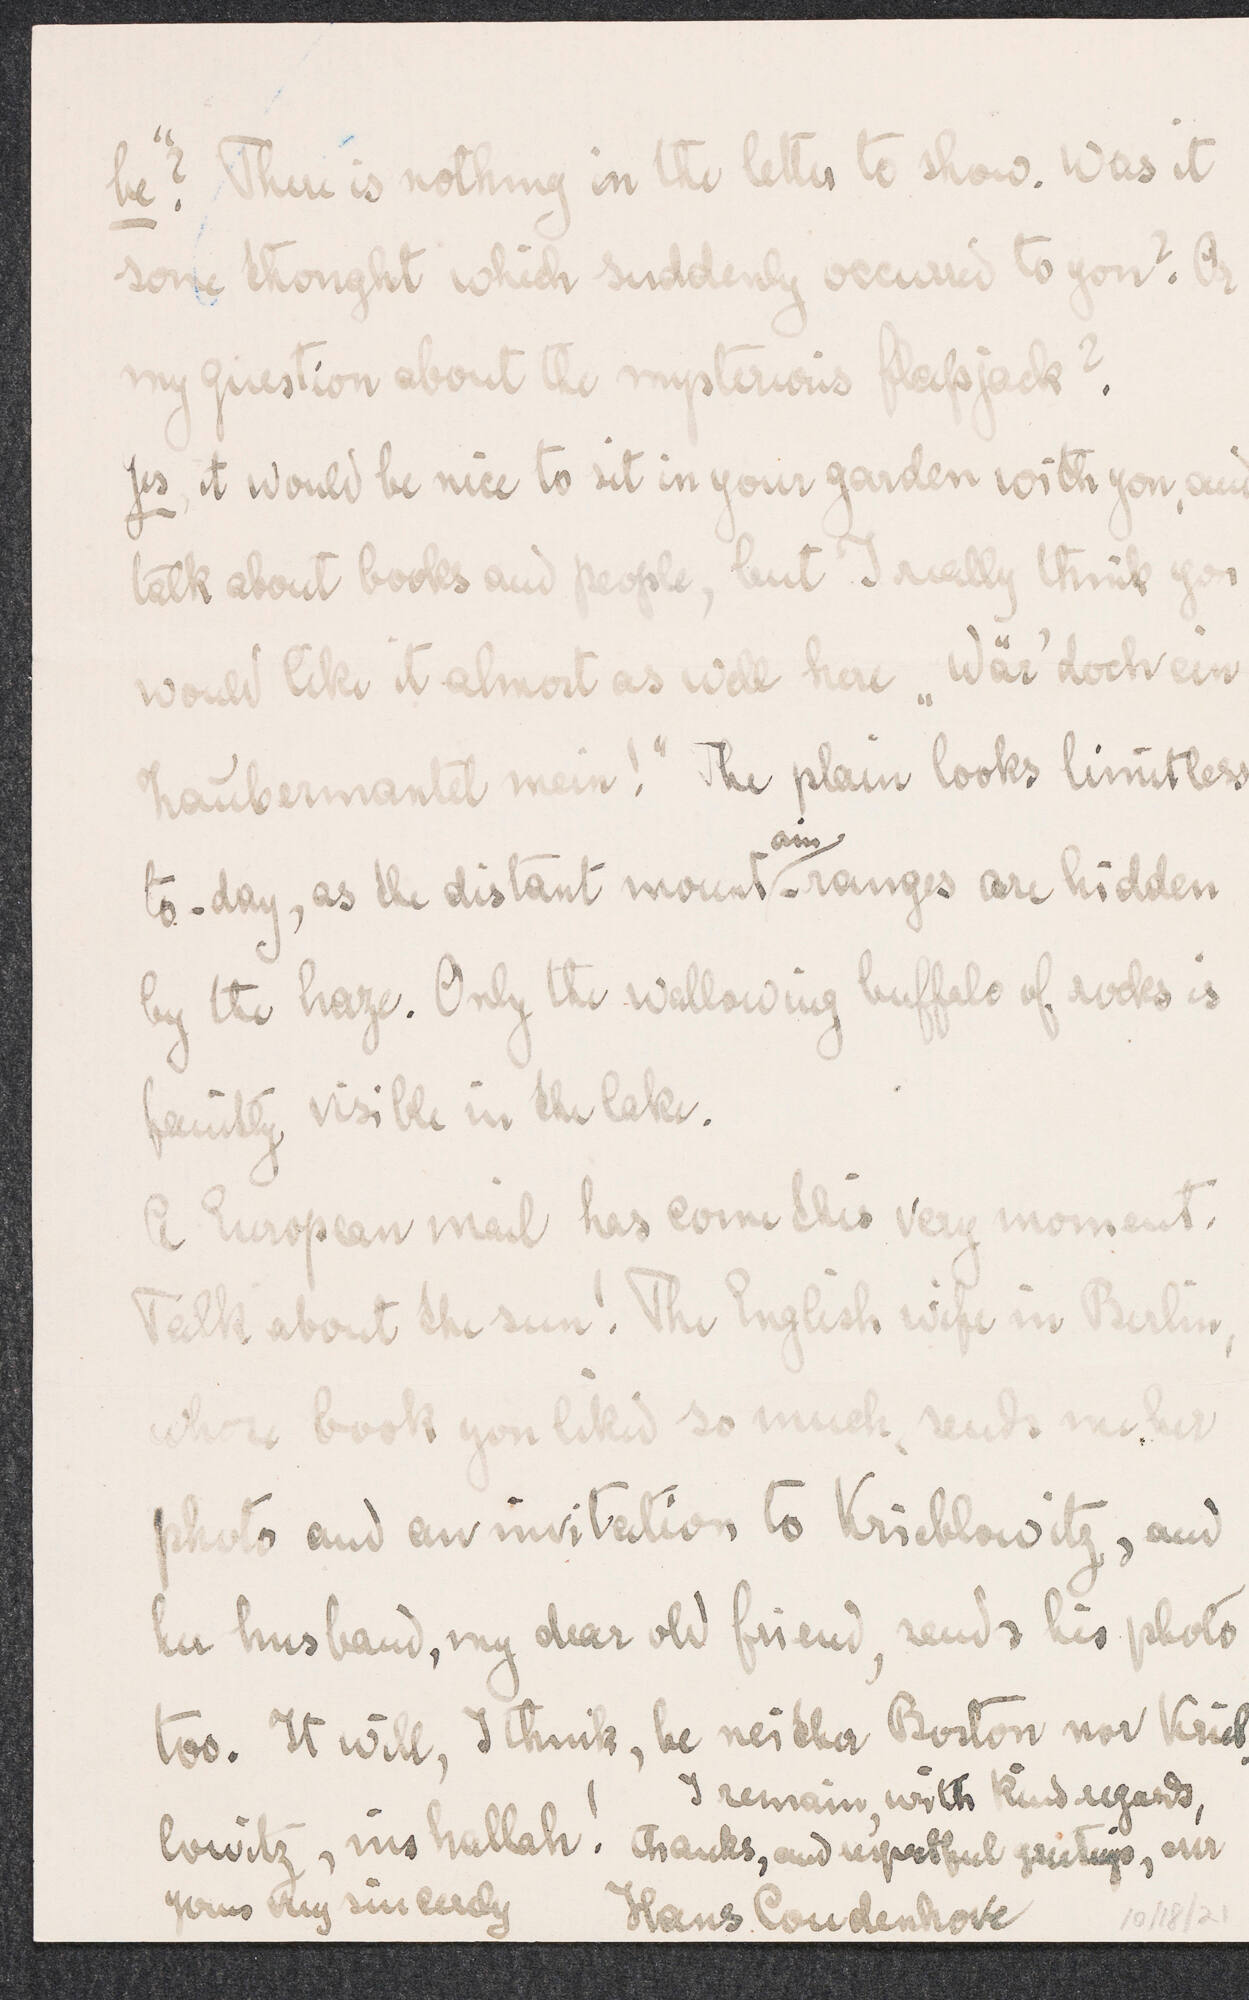 be"? There is nothing in the letter to show. Was it
some thought which suddenly occurred to you? Or
my question about the mysterious flapjack?
Yes, it would be nice to sit in your garden with you, and
talk about books and people, but I really think you
would like it almost as well here „Wär' doch ein
Zaubermantel mein!" The plain looks limitless
to-day, as the distant mountain-ranges are hidden
by the haze. Only the wallowing buffalo of rocks is
faintly visible in the lake.
A European mail has come this very moment.
Talk about the sun! The English wife in Berlin,
whose book you liked so much, sends me her
photo and an invitation to Krieblowitz, and
her husband, my dear old friend, sends his photo
too. It will, I think, be neither Boston nor Krieb-
lowitz, inshallah! I remain, with kind regards,
thanks, and respectful greetings, ever
yours very sincerely Hans Coudenhove
10/18/21